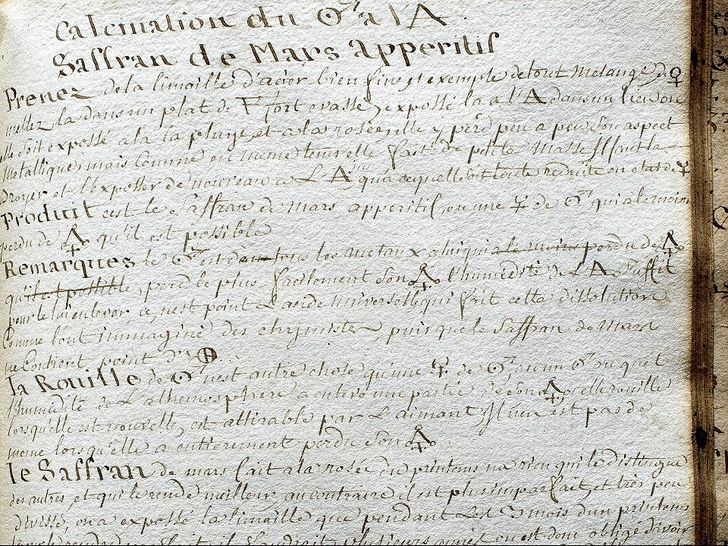 Calcination du ♂ a l 🜁
Saffran de Mars apperitif
Prenez de la limaille d'acier bien fine, et exempte de tout melange de ♀
mettez la dans un plat de terre fort evassé, exposséz la a l'🜁 dans un lieu ou
elle soit expossé a la pluye et a la rosée elle y perd peu a peu son aspect
metallique; mais comme en meme tems elle fait de petite masse Il faut la
broyer et l'exposser de nouveau a L'🜁 qu'a ce quelle soit toute reduite en etat de
Produit est le Saffran de mars apperitif ou une de ♂ qui a le moins
perdu de 🜍 qu'il est possible
Remarques le ♂ est de tous les metaux celui qui a le moins perdu de 🜍
qu'il est possible perd le plus facilement son 🜍 l'humidité de L'🜁 suffit
pour le lui enlever ce n'est point L'acide universel qui fait cette dissolution
Comme l'ont immaginé des chymistes, puisque le Saffran de Mars
ne Contient point
la Rouille de ♂ n'est autre chose qu'une de ♂ ou un ♂ au quel
l'humidité de L'athmosphere a enlevé une partie de son 🜍 elle
lorsqu'elle est nouvelle, est attirable par L'aimant Il n'en est pas de
meme lorsqu'elle a entierement perdu son 🜍
le Saffran de mars fait a la rosée du printems n'a rien qui le distingue
des autres, et qui le rende meilleur, au contraire il est plus imparfait, et tres peu
divissé, on a expossé la limaille que pendant Les 3 mois d'un printems
ou est donc obligé d'avoir